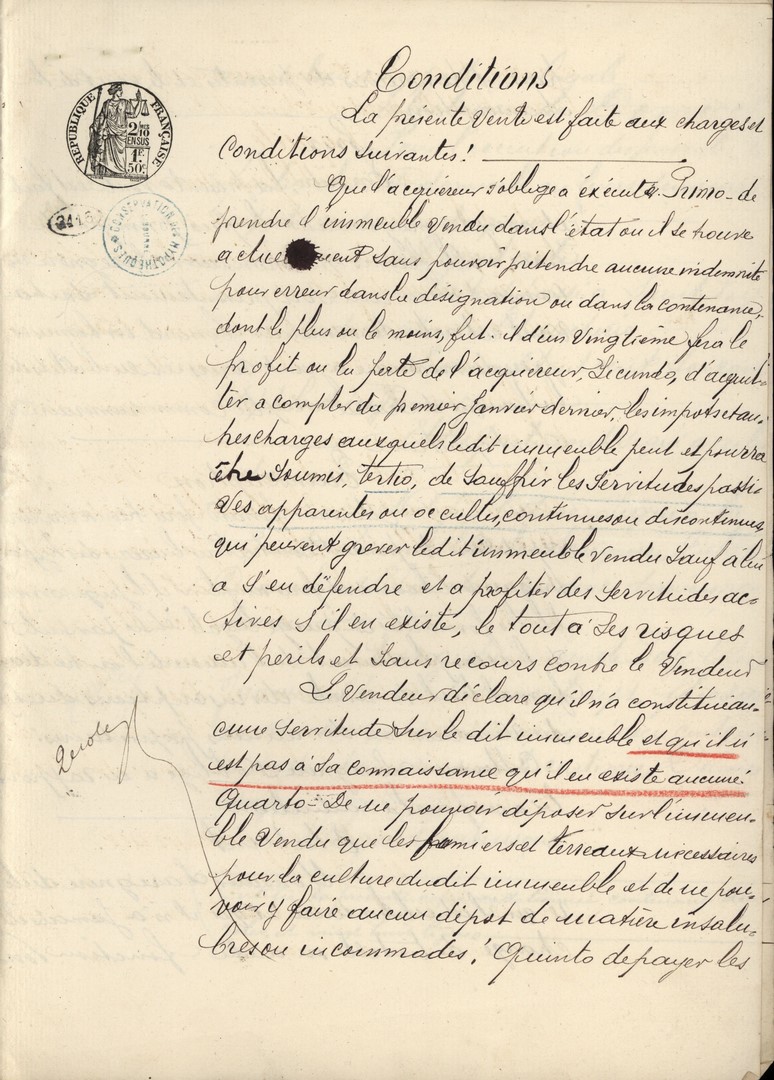 Conditions
La présente Vente est faite aux charges et
Conditions Suivantes! 
Que l'acquéreur s'oblige à éxécuter. Primo - de
prendre l'immeuble Vendu dans l'état ou il se trouve
actue ment sans pouvoir prétendre aucune indemnité
pour erreur dans la désignation ou dans la contenance,
dont le plus ou le moins, fut-il d'un Vingtième fera le
profit ou la perte de l'acquéreur, Secundo, d'acquit-
ter a compter du premier Janvier dernier, les impots et au-
tres charges auxquels ledit immeuble peut et pourra
être Soumis, tertio, de Souffrir les Servitudes passi-
Ves apparentes ou occultes, continues ou discontinues,
qui peuvent grever ledit immeuble Vendu Sauf à lui
a S'en défendre et a profiter des Servitudes ac-
tives S'il en existe, le tout à Ses risques
et perils et Sans recours contre le Vendeur
Le Vendeur déclare qu'il n'a constitué au-
cune Servitude Sur le dit immeuble et qu'il n'
est pas à Sa connaissance qu'il en existe aucune.
Quarto - De ne pouvoir déposer Sur l'immeu-
ble Vendu que les fumiers et terreaux nécessaires
pour la culture dudit immeuble et de ne pou-
voir y faire aucun dépot de matière insalu-
bres ou incommodes! Quinto de payer les
RÉPUBLIQUE FRANÇAISE
2/10
EN SUS
1F
50c
CONSERVATION DES HYPOTHÈQUES